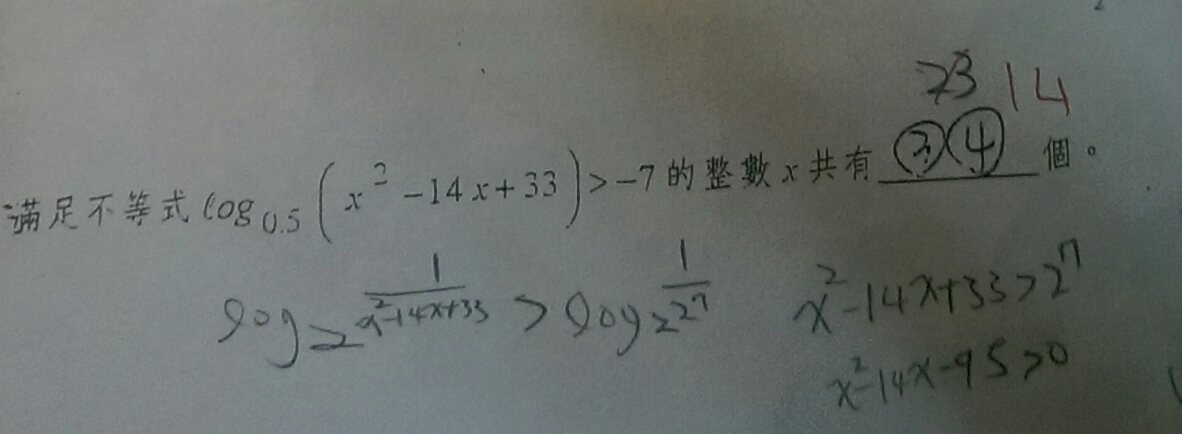 23 14
滿足不等式 log_{0.5}(x^2-14x+33)>-7的整數x共有 ③④ 個。
log_2^{\frac{1}{x^2-14x+33}} > log_2^{\frac{1}{2^7}} x^2-14x+33>2^7
x^2-14x-95>0